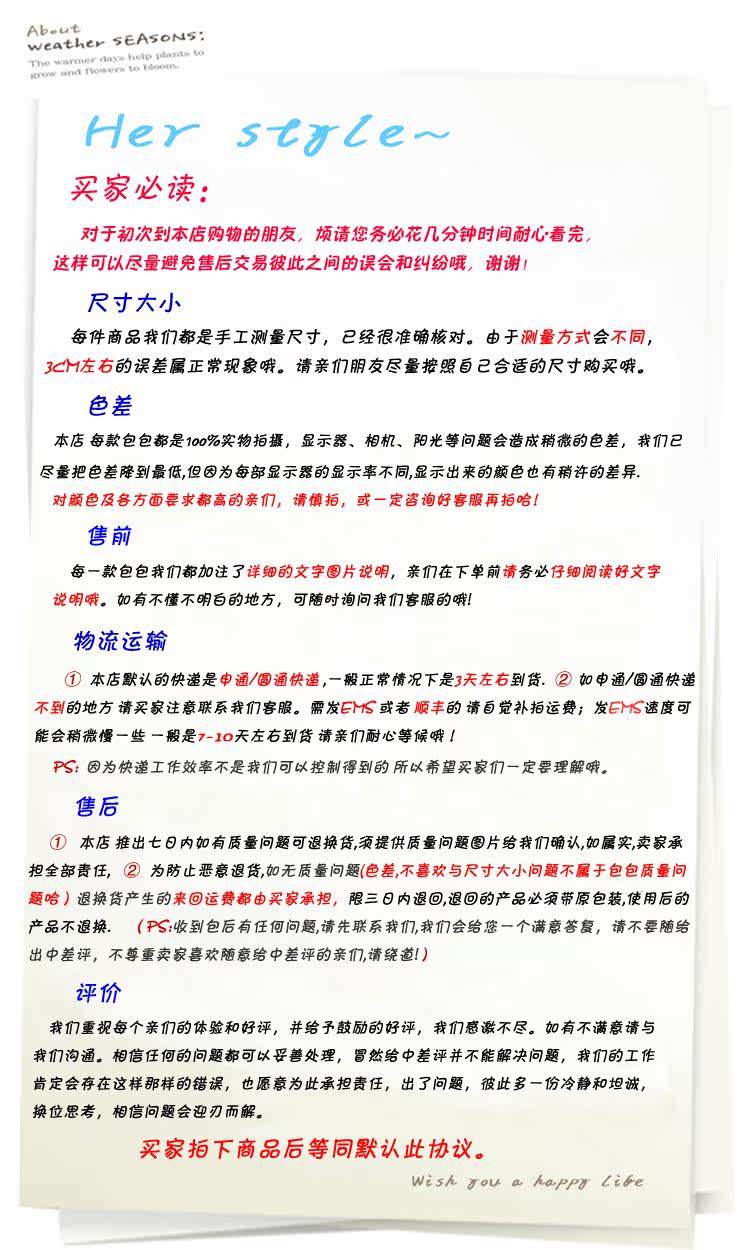 About
weather SEASONS:
The warmer days help plants to
grow and flowers to bloom.
Her style~
买家必读：
对于初次到本店购物的朋友，烦请您务必花几分钟时间耐心看完，
这样可以尽量避免售后交易彼此之间的误会和纠纷哦，谢谢！
尺寸大小
每件商品我们都是手工测量尺寸，已经很准确核对。由于测量方式会不同，
3CM左右的误差属正常现象哦。请亲们朋友尽量按照自己合适的尺寸购买哦。
色差
本店 每款包包都是100%实物拍摄，显示器、相机、阳光等问题会造成稍微的色差，我们已
尽量把色差降到最低,但因为每部显示器的显示率不同,显示出来的颜色也有稍许的差异.
对颜色及各方面要求都高的亲们，请慎拍，或一定咨询好客服再拍哈!
售前
每一款包包我们都加注了详细的文字图片说明，亲们在下单前请务必仔细阅读好文字
说明哦。如有不懂不明白的地方，可随时询问我们客服的哦!
物流运输
① 本店默认的快递是申通/圆通快递,一般正常情况下是3天左右到货. ② 如申通/圆通快递
不到的地方 请买家注意联系我们客服。需发EMS 或者 顺丰的 请自觉补拍运费；发EMS速度可
能会稍微慢一些 一般是7-10天左右到货 请亲们耐心等候哦！
PS: 因为快递工作效率不是我们可以控制得到的 所以希望买家们一定要理解哦。
售后
① 本店 推出七日内如有质量问题可退换货,须提供质量问题图片给我们确认,如属实,卖家承
担全部责任, ② 为防止恶意退货,如无质量问题(色差,不喜欢与尺寸大小问题不属于包包质量问
题哈）退换货产生的来回运费都由买家承担，限三日内退回,退回的产品必须带原包装,使用后的
产品不退换. （PS:收到包后有任何问题,请先联系我们,我们会给您一个满意答复，请不要随给
出中差评，不尊重卖家喜欢随意给中差评的亲们,请绕道!）
评价
我们重视每个亲们的体验和好评，并给予鼓励的好评，我们感激不尽。如有不满意请与
我们沟通。相信任何的问题都可以妥善处理，冒然给中差评并不能解决问题，我们的工作
肯定会存在这样那样的错误，也愿意为此承担责任，出了问题，彼此多一份冷静和坦诚，
换位思考，相信问题会迎刃而解。
买家拍下商品后等同默认此协议。
Wish you a happy libe